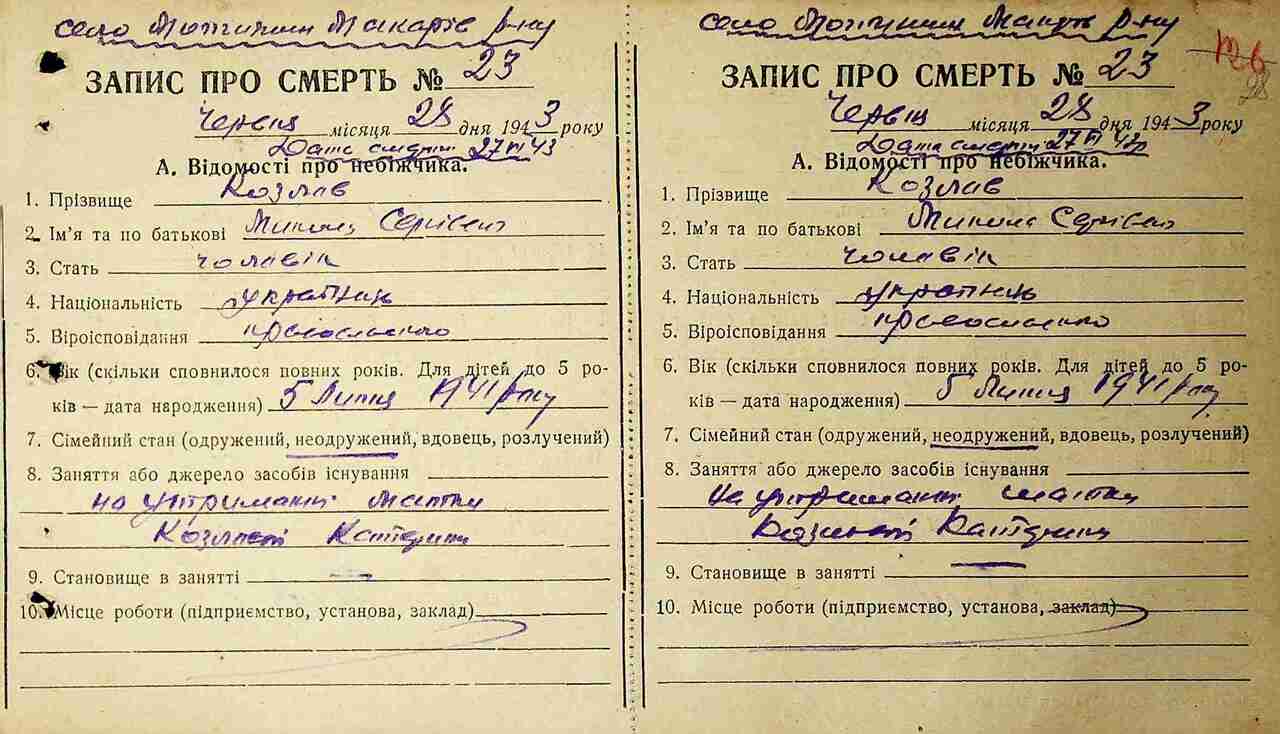 село Мотижин Макарів р-ну
ЗАПИС ПРО СМЕРТЬ № 23
Червня місяця 28 дня 1943 року
Дата смерті 27 VI 43
А. Відомості про небіжчика.
1. Прізвище Козлав
2. Ім'я та по батькові Микола
3. Стать чолавік
4. Національність українець
5. Віроісповідання православно
6. Вік (скільки сповнилося повних років. Для дітей до 5 ро-
ків — дата народження) 5 Липня 1941 року
7. Сімейний стан (одружений, неодружений, вдовець, розлучений)
8. Заняття або джерело засобів існування
на утриманні матки
Катерини
9. Становище в занятті —
10. Місце роботи (підприємство, установа, заклад)
село Мотижин Макарів р-ну
ЗАПИС ПРО СМЕРТЬ № 23
Червня місяця 28 дня 1943 року
Дата смерті 27 VI 43р
А. Відомості про небіжчика.
1. Прізвище Козлав
2. Ім'я та по батькові Микола
3. Стать чолавік
4. Національність українець
5. Віроісповідання православно
6. Вік (скільки сповнилося повних років. Для дітей до 5 ро-
ків — дата народження) 5 Липня 1941 року
7. Сімейний стан (одружений, неодружений, вдовець, розлучений)
8. Заняття або джерело засобів існування
на утриманні матки
Катерини
9. Становище в занятті —
10. Місце роботи (підприємство, установа, заклад)